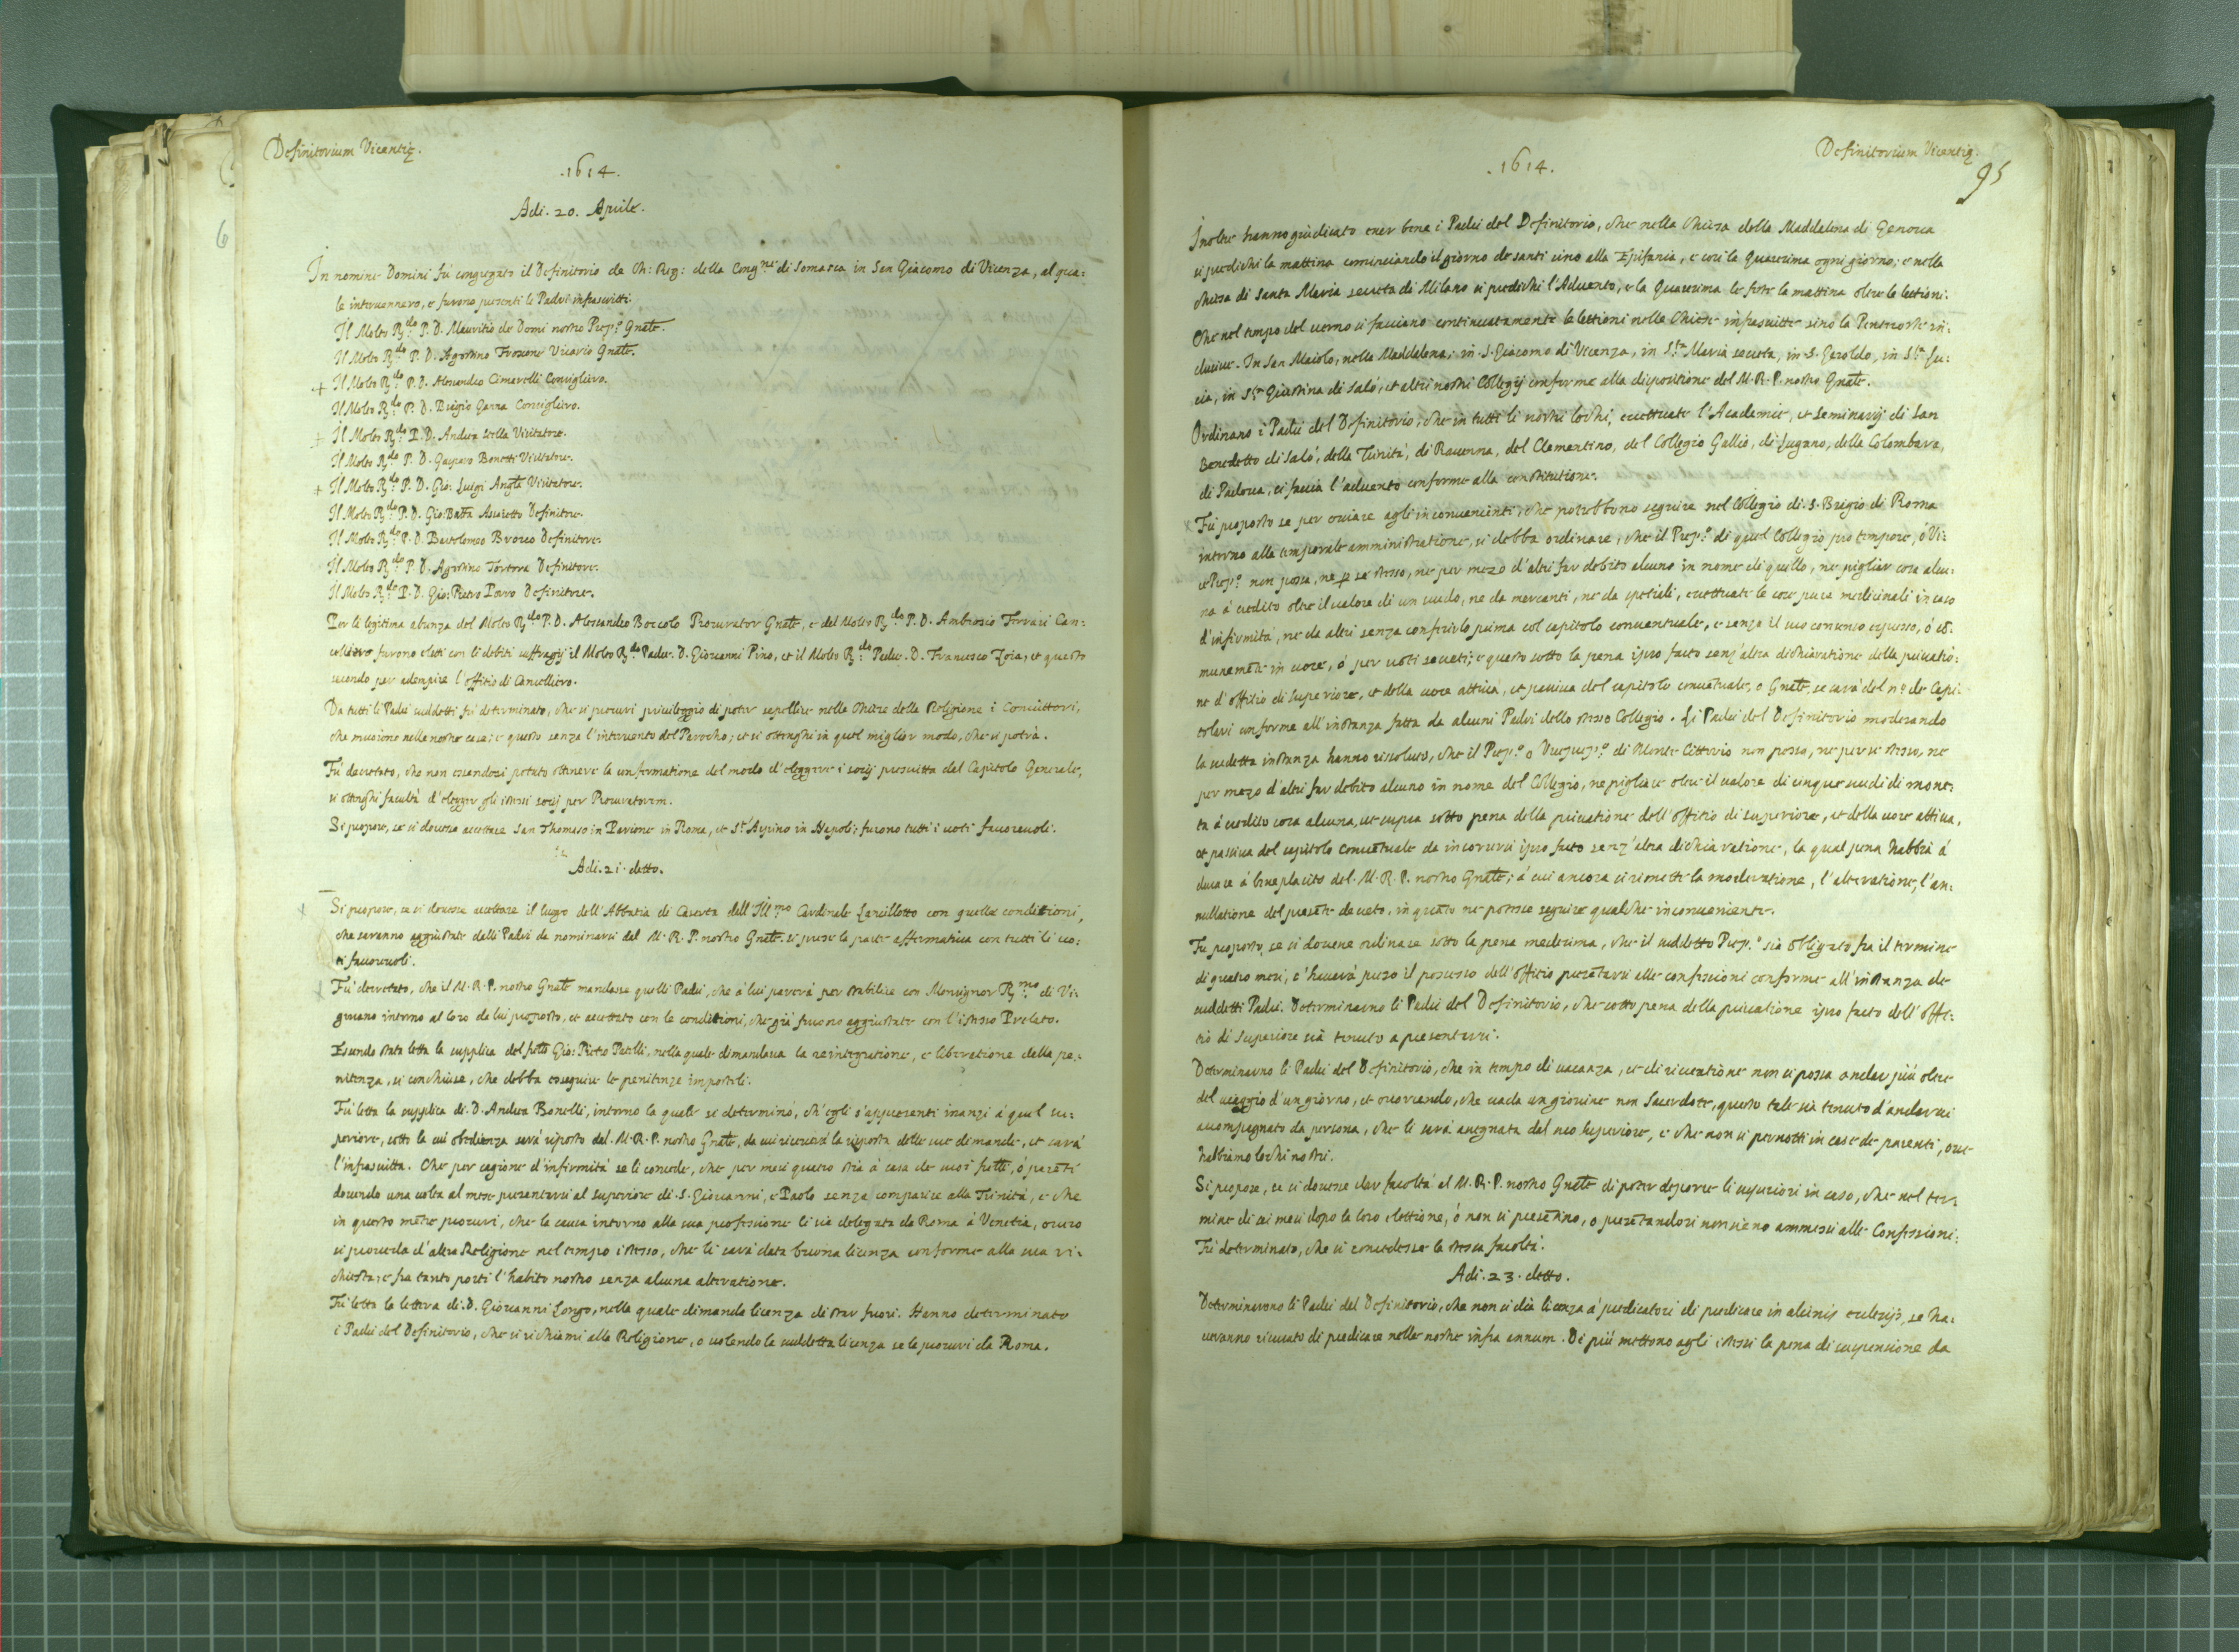 Definitorium Vicentię.
.1614.
Adi. 20. Aprile.
In nomine Domini fù congregato il Definitorio de Ch: Reg: della Cong.ne di Somasca in San Giacomo di Vicenza, al qua:
le intervennero, e furono presenti li Padri infrascritti.
Il Molto R.do P. D. Mauritio de Domi nostro Prep.o Gnãle.
Il Molto R.do P. D. Agostino Froscone Vicario Gnãle.
+ Il Molto R.do P. D. Alessandro Cimarelli Consigliero.
Il Molto R.do P. D. Biagio Ganna Consigliero.
+ Il Molto R.do P. D. Andrea Stella Visitatore.
Il Molto R.do P. D. Gasparo Bonetti Visitatore.
+ Il Molto R.do P. D. Gio: Luigi Visitatore.
Il Molto R.do P. D. Gio: Batta Assereto Definitore.
Il Molto R.do P. D. Bartolomeo Brocco Definitore.
Il Molto R.do P. D. Agostino Tortora Definitore.
Il Molto R.do P. D. Gio: Pietro Porro Definitore.
Per li legitima absenza del Molto R.do P. D. Alessandro Boccolo Procurator Gnãle, e del Molto R.do P. D. Ambrosio Ferrari Can:
celliero furono eletti con li debiti suffragij il Molto R.do Padre. D. Giovanni Pino, et il Molto R.do Padre. D. Francesco Zoia, et questo
secondo per adempire l'offitio di Cancelliero.
Da tutti li Padri suddetti fù determinato, che si procuri privileggio di poter sepellire nelle Chiese della Religione i Convittori,
che muoiono nelle nostre case; e questo senza l'intervento del Parocho; et si ottenghi in quel miglior modo, che si potrà.
Fù decretato, che non essendosi potuto ottenere la confirmatione del modo d'eleggere i socij prescritta dal Capitolo Generale,
si ottenghi facultà d'elegger gli istessi socij per Procuratorem.
Si propose, se si dovesse accettare San Thomaso in Parione in Roma, et S.t'Aspino in Napoli; furono tutti i voti favorevoli.
Adi. 21. detto.
x Si propose, se si dovesse accettare il luogo dell'Abbatia di Caserta dell'Ill.mo Cardinale Lancillotto con quelle conditioni,
che saranno aggiustate dalli Padri da nominarsi dal M. R. P. nostro Gnãle. si prese la parte affermativa con tutti li vo:
ti favorevoli.
x Fù decretato, che il M. R. P. nostro Gnãle mandasse quelli Padri, che à lui parerà per stabilire con Monsignor R.mo di Vi:
gevano intorno al loco da lui proposto, et accettato con le conditioni, che già furono aggiustate con l'istesso Prelato.
Essendo stata letta la supplica del frãtto Gio: Pietro Patelli, nella quale dimandava la reintegratione, e liberatione della pe:
nitenza, si conchiuse, che debba esseguire le penitenze impostoli.
Fù letta la supplica di. D. Andrea Bonelli, intorno la quale si determinò, ch'egli s'appresenti inanzi à quel su:
periore, sotto la cui obedienza sarà riposto dal. M. R. P. nostro Gnãle, da cui riceverà la risposta delle sue dimande, et sarà
l'infrascritta. Che per cagione d'infirmità se li concede, che per mesi quatro stia à casa de suoi frãlli, ò parẽti
dovendo una volta al mese presentarsi al superiore di. S. Giovanni, e Paolo senza comparire alla Trinità, e che
in questo mẽtre procuri, che la causa intorno alla sua professione li sia delegata da Roma à Venetia, overo
si proveda d'altra Religione nel tempo istesso, che li sarà data buona licenza conforme alla sua ri:
chiesta; e fra tanto porti l'habito nostro senza alcuna alteratione.
Fù letta la lettera di. D. Giovanni Longo, nella quale dimanda licenza di star fuori. Hanno determinato
i Padri del Definitorio, che si richiami alla Religione, o volendo la suddetta licenza se la procuri da Roma.
Definitorium Vicentię.
95
.1614.
Inoltre hanno giudicato esser bene i Padri del Definitorio, che nella Chiesa della Maddalena di Genova
si predichi la mattina cominciando il giorno de santi sino alla Epifania, e così la Quaresima ogni giorno; e nella
chiesa di Santa Maria secreta di Milano si predichi l'Advento, e la Quaresima le feste la mattina oltre le lettioni.
Che nel tempo del verno si facciano continuatamente le lettioni nelle Chiese infrascritte sino la Pentecoste in:
clusive. In San Maiolo, nella Maddalena; in. S. Giacomo di Vicenza, in S.ta Maria secreta, in. S. Geroldo, in S.ta Lu:
cia, in S.ta Giustina di Salò, et altri nostri Collegij conforme alla dispositione del M. R. P. nostro Gnãle.
Ordinano i Padri del Definitorio, che in tutti li nostri lochi, eccettuate l'Academie, et Seminarij di San
Benedetto di Salò, della Trinità, di Ravenna, del Clementino, del Collegio Gallio, di Lugano, della Colombara,
di Padova, si faccia l'advento conforme alla constitutione.
x Fù proposto se per oviare agli inconvenienti, che potrebbono seguire nel Collegio di. S. Biagio di Roma
intorno alla temporale amministratione, si debba ordinare, che il Prep.o di quel Collegio pro tempore, ò Vi:
ce Prep.o non possa, ne p se stesso, ne per mezo d'altri far debito alcuno in nome di quello, ne pigliar cosa alcu:
na à credito oltre il valore di un scudo, ne da mercanti, ne da spetiali, eccettuate le cose pure medicinali in caso
d'infirmità, ne da altri senza conferirlo prima col capitolo conventuale, e senza il suo consenso espresso, ò cõ:
munemẽte in voce, ò per voti secreti; e questo sotto la pena ipso facto senz'altra dichiaratione della privatio:
ne d'offitio di Superiore, et della voce attiva, et passiva del capitolo convẽtuale, o Gnãle, se sarà del n.o de Capi:
tolari conforme all'instanza fatta da alcuni Padri dello stesso Collegio. Li Padri del Definitorio moderando
la sudetta instanza hanno rissoluto, che il Prep.o o Viceprep.o di Monte Cittorio non possa, ne per se stesso, ne
per mezo d'altri far debito alcuno in nome del Collegio, ne pigliare oltre il valore di cinque scudi di mone:
ta à credito cosa alcuna, ut supra sotto pena della privatione dell'offitio di superiore, et della voce attiva,
et passiva del capitolo Convẽtuale da incorrersi ipso facto senz'altra dichiaratione, la qual pena habbia à
durare à beneplacito del. M. R. P. nostro Gnãle; à cui ancora si rimette la moderatione, l'alteratione, l'an:
nullatione del presẽte decreto, in quãto ne potesse seguire qualche inconveniente.
Fù proposto, se si dovesse ordinare sotto la pena medesima, che il suddetto Prep.o sia obligato fra il termine
di quatro mesi, c'haverà preso il possesso dell'offitio presẽtarsi alle confessioni conforme all'instanza de
suddetti Padri. Determinarno li Padri del Definitorio, che sotto pena della privatione ipso facto dell'offi:
tio di Superiore sià tenuto a presentarsi.
Determinarno li Padri del Definitorio, che in tempo di vacanza, et di ricreatione non si possa andar più oltre
del viaggio d'un giorno, et occorrendo, che vada un giovine non Sacerdote, questo tale sia tenuto d'andarvi
accompagnato da persona, che li sarà assegnata dal suo superiore, e che non si pernotti in case de parenti, ove
habbiamo lochi nostri.
Si propose, se si dovesse dar facoltà al M. R. P. nostro Gnãle di poter deporre li superiori in caso, che nel ter:
mine di sei mesi dopo la loro elettione, ò non si presẽtino, o presẽtandosi non sieno ammessi alle Confessioni;
Fù determinato, che si concedesse la stessa facoltà.
Adi. 23. detto.
Determinarono li Padri del Definitorio, che non si dia licenza à predicatori di predicare in alienis ecclesijs, se ha:
veranno ricusato di predicare nelle nostre infra annum. Di più mettono agli istessi la pena di suspensione da